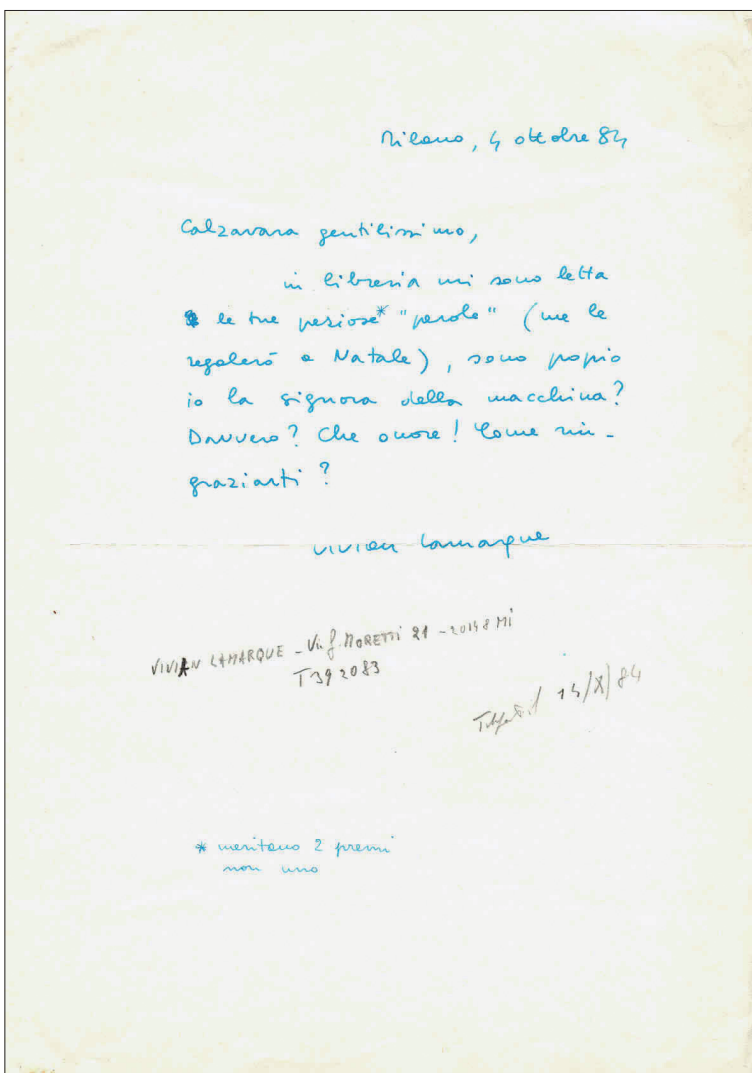 Milano, 4 ottobre 84
Calzavara gentilissimo,
in libreria mi sono letta
le tue peziose* "parole" (me le
regalerò a Natale), sono popio
io la signora della macchina?
Davvero? Che onore! Come rin-
graziarti?
Vivian Lamarque
VIVIAN LAMARQUE - Via F. MORETTI 21 - 20148 MI
T 392083
14/X/84
* meritano 2 premi
non uno